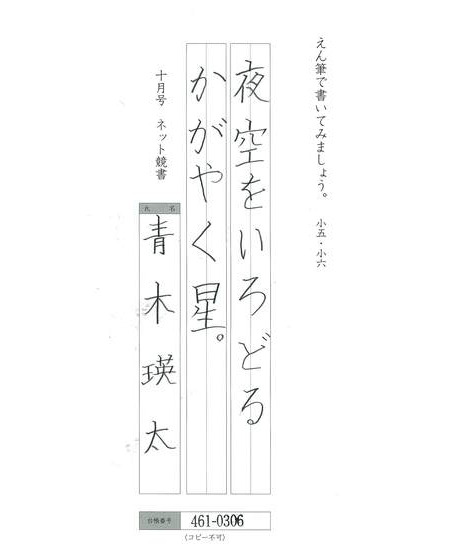 えん筆で書いてみましょう。 小五・小六
夜空をいろどる
かがやく星。
十月号 ネット競書
氏名
青木瑛太
台帳番号
461-0306
(コピー不可)